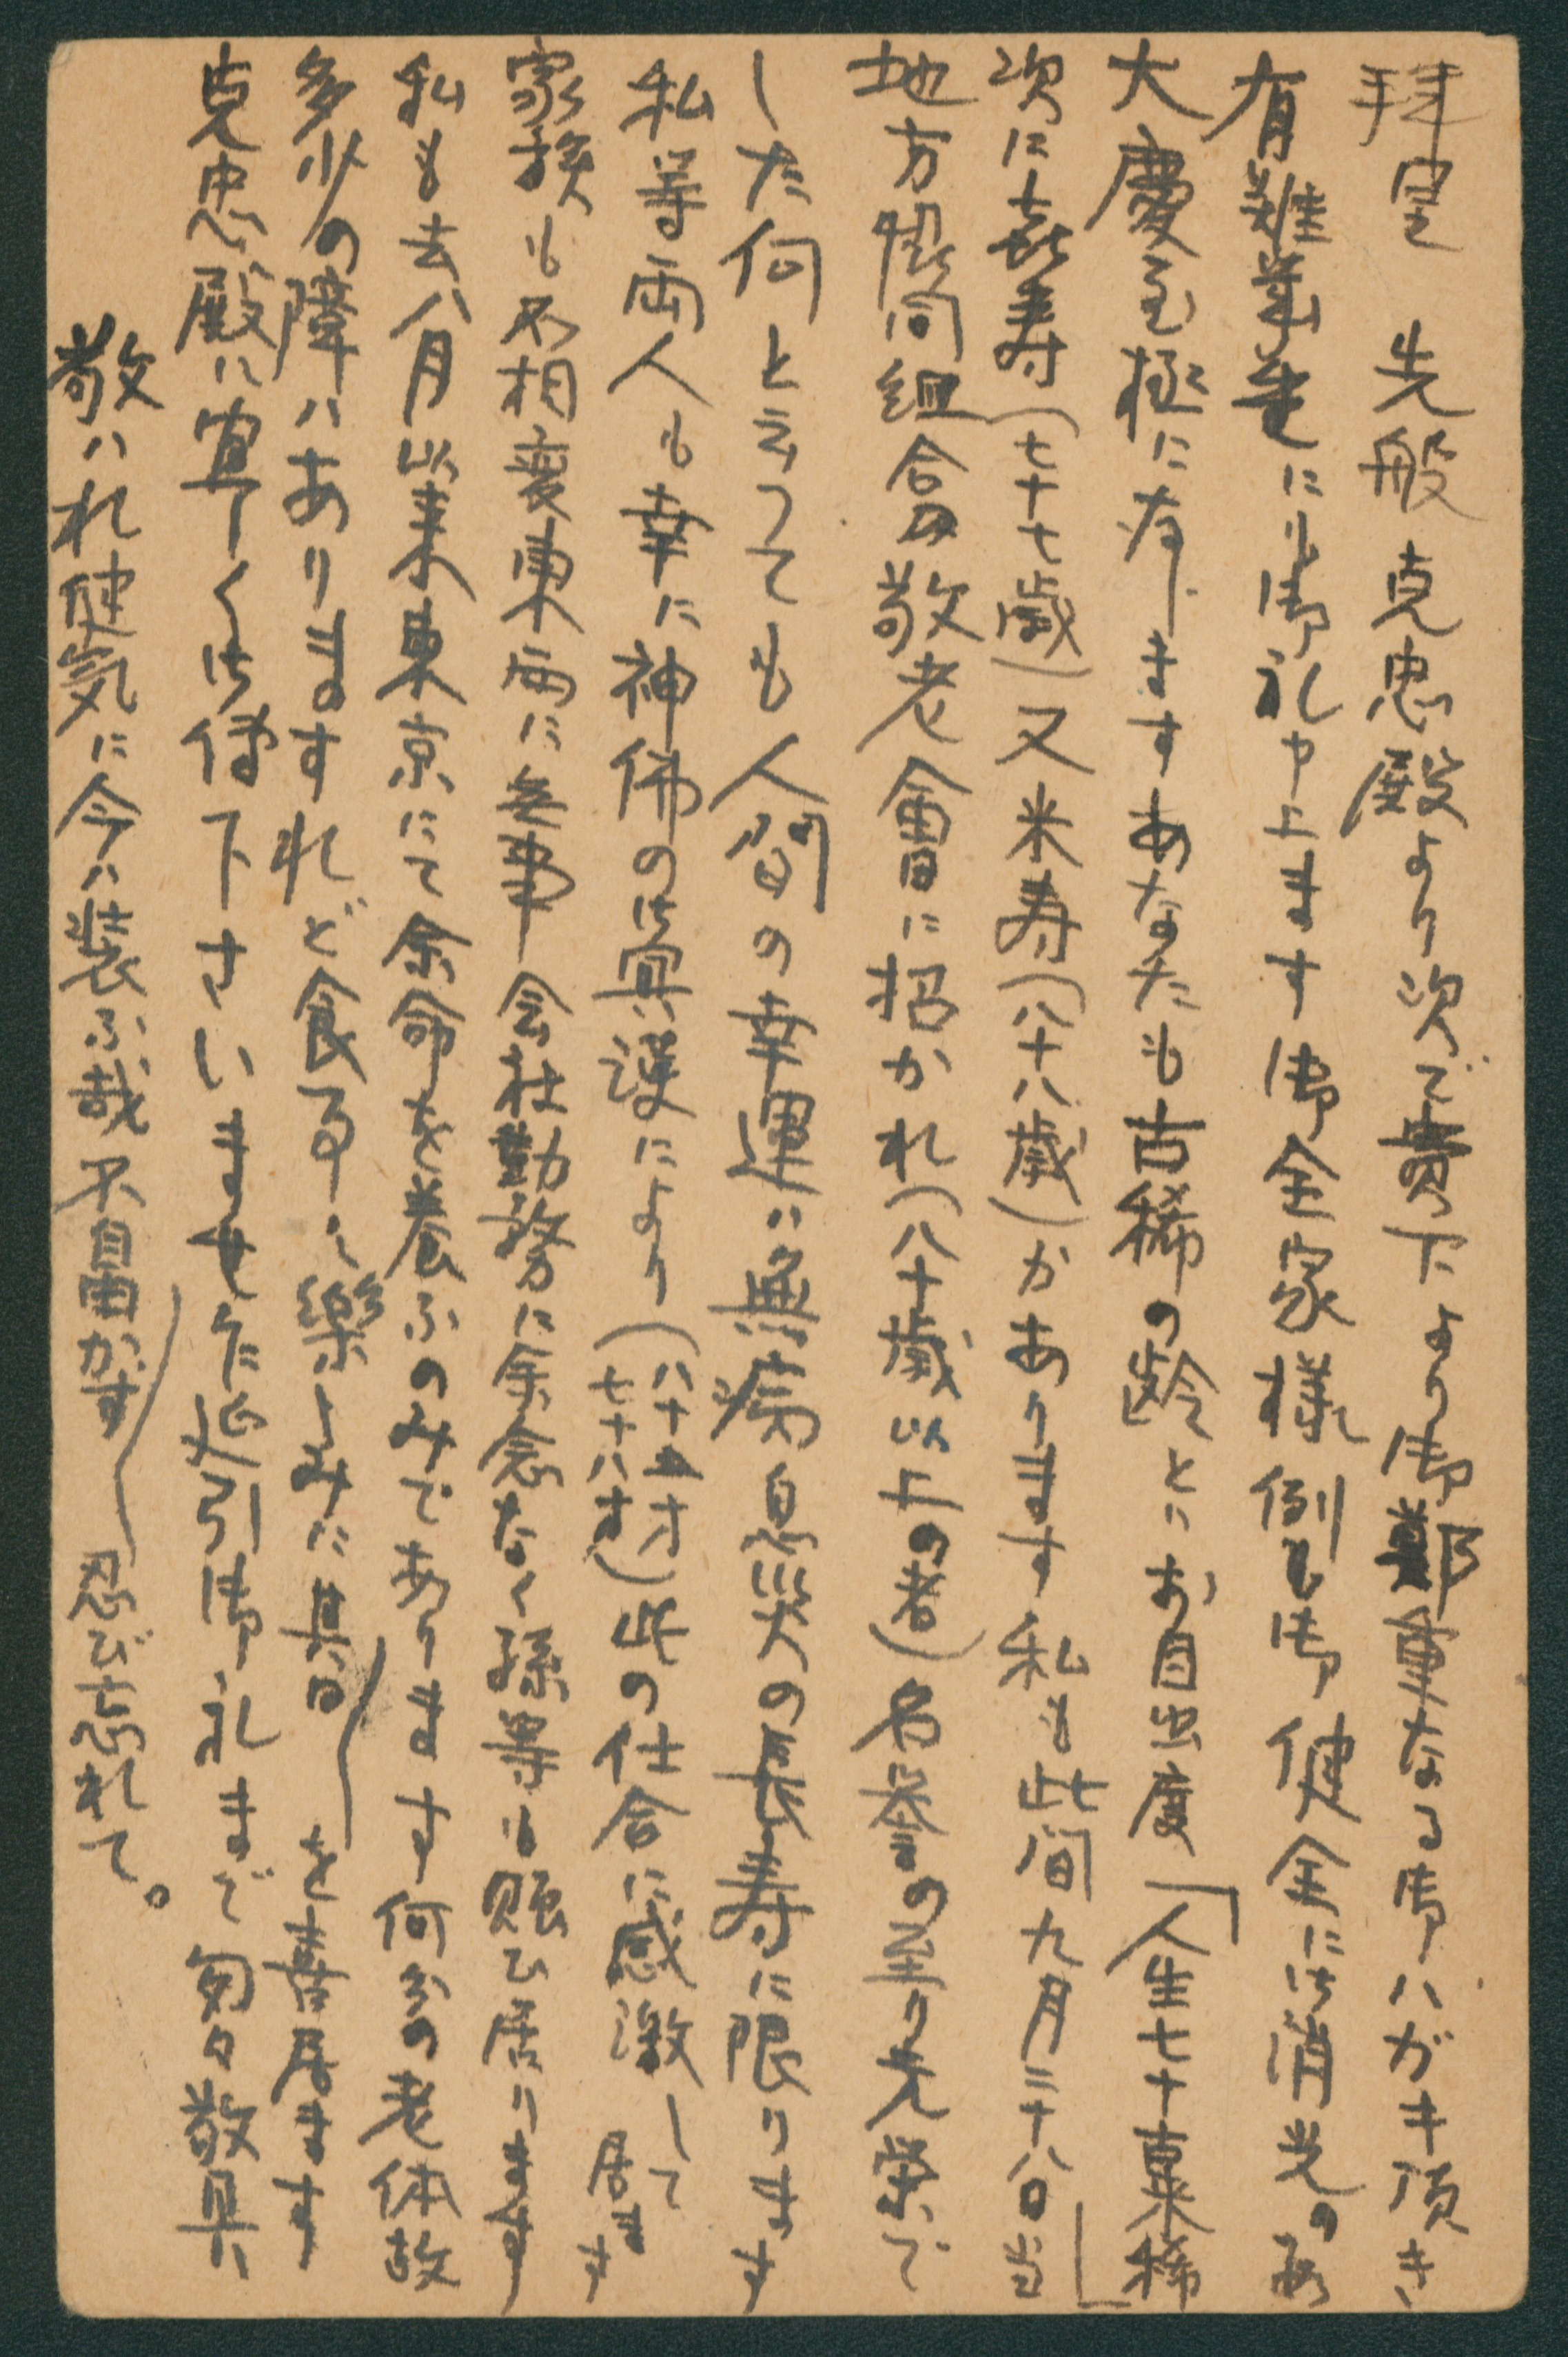 拝呈 先般克忠殿より次で貴下より御鄭重なる御ハガキ頂き
有難 御礼申上ます御全家様倒も御健全に御消光の
大慶至極に存しますあなたも古稀の齢とハお目出度「人生七十稟稀」
次に喜寿(七十七歳)又米寿(八十八歳)かあります私も此間九月二十八日当
地方 同組合の敬老會に招かれ(八十歳以上の者)名誉の至り光栄で
した何と云つても人間の幸運ハ無病息災の長寿に限ります
私等両人も幸に神佛の御冥護により(八十五才 七十八才)此の仕合に感激して居ます
家族も不相変東西に無事会社勤務に余念なく孫等も賑ひ居ります
私も去八月以来東京にて余命を養ふのみであります何分の老体故
多少の障ハありますれど食する 楽しみに其日〱を喜居ます
克忠殿に宜しく御傳下さいませ乍延引御礼まで匆々敬具
敬ハれ健気に今ハ装ふ哉不自由かず〱忍び忘れて。